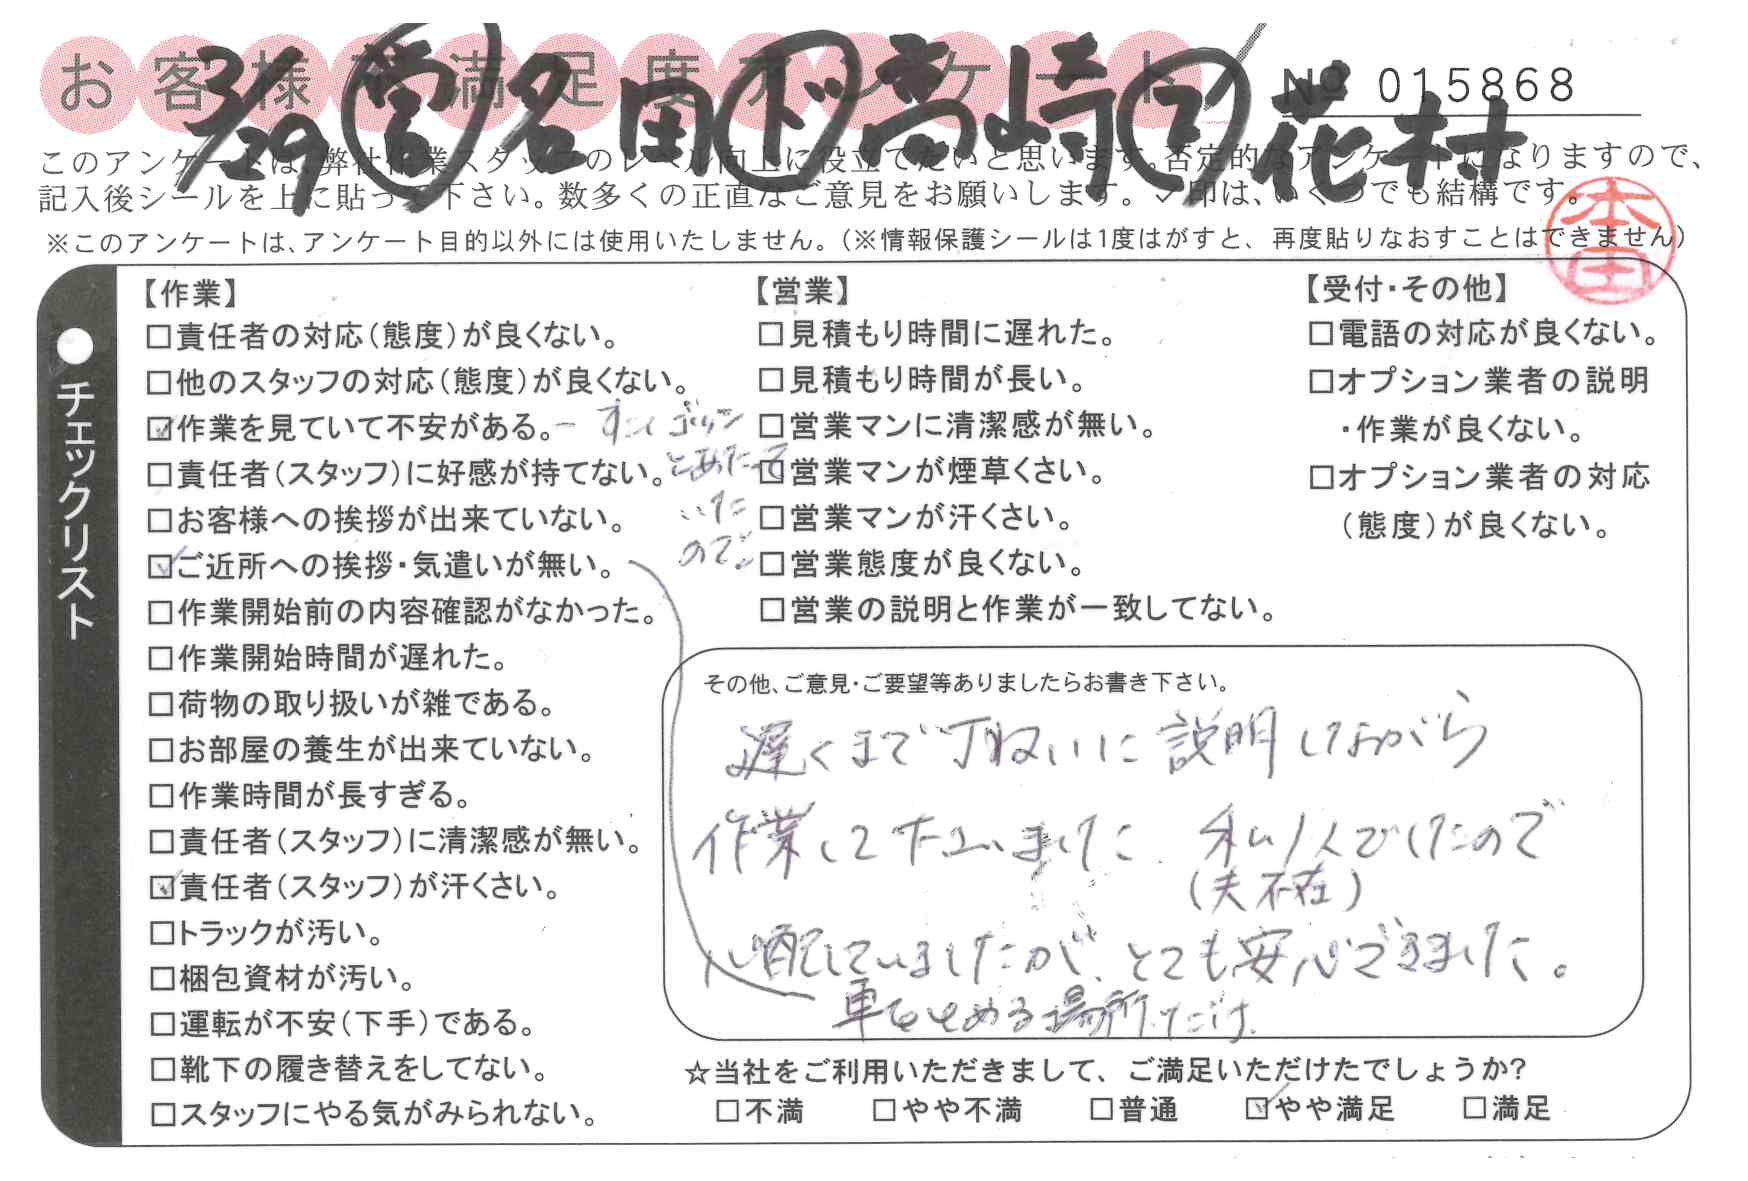 お客様不満足度アンケート
3/29 営 名田 ド 高崎 ア 花村
№ 015868
このアンケートは、弊社作業スタッフのレベル向上に役立てたいと思います。否定的なアンケートになりますので、
記入後シールを上に貼って下さい。数多くの正直なご意見をお願いします。✓印は、いくつでも結構です。
※このアンケートは、アンケート目的以外には使用いたしません。(※情報保護シールは1度はがすと、再度貼りなおすことはできません)
本田
●チェックリスト
【作業】
□責任者の対応(態度)が良くない。
□他のスタッフの対応(態度)が良くない。
☑作業を見ていて不安がある。
□責任者(スタッフ)に好感が持てない。
□お客様への挨拶が出来ていない。
☑ご近所への挨拶・気遣いが無い。
□作業開始前の内容確認がなかった。
□作業開始時間が遅れた。
□荷物の取り扱いが雑である。
□お部屋の養生が出来ていない。
□作業時間が長すぎる。
□責任者(スタッフ)に清潔感が無い。
☑責任者(スタッフ)が汗くさい。
□トラックが汚い。
□梱包資材が汚い。
□運転が不安(下手)である。
□靴下の履き替えをしてない。
□スタッフにやる気がみられない。
ゴツン
とあたって
いた
ので。
【営業】
□見積もり時間に遅れた。
□見積もり時間が長い。
□営業マンに清潔感が無い。
□営業マンが煙草くさい。
□営業マンが汗くさい。
□営業態度が良くない。
□営業の説明と作業が一致してない。
【受付・その他】
□電話の対応が良くない。
□オプション業者の説明
・作業が良くない。
□オプション業者の対応
(態度)が良くない。
その他、ご意見・ご要望等ありましたらお書き下さい。
遅くまで丁ねいに説明しながら
作業して下さいました。私1人でしたので
(夫不在)
心配していましたが、とても安心できました。
車をとめる場所だけ
☆当社をご利用いただきまして、ご満足いただけたでしょうか?
□不満 □やや不満 □普通 ☑やや満足 □満足